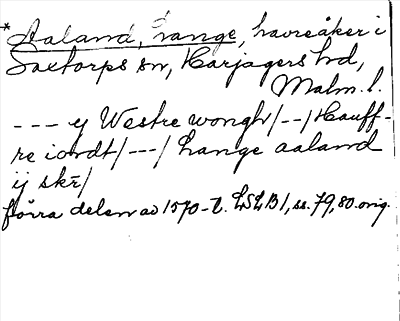 * Aaland, hange, havreåker i
Saxtorps sn, Harjagers hd,
Malm. l.
--- y Westre wongh/--/Hauff-
re iordt/---/ hange aaland
ij skr/
förra delen av 1570-t. LSLB1, ss. 79, 80. orig.